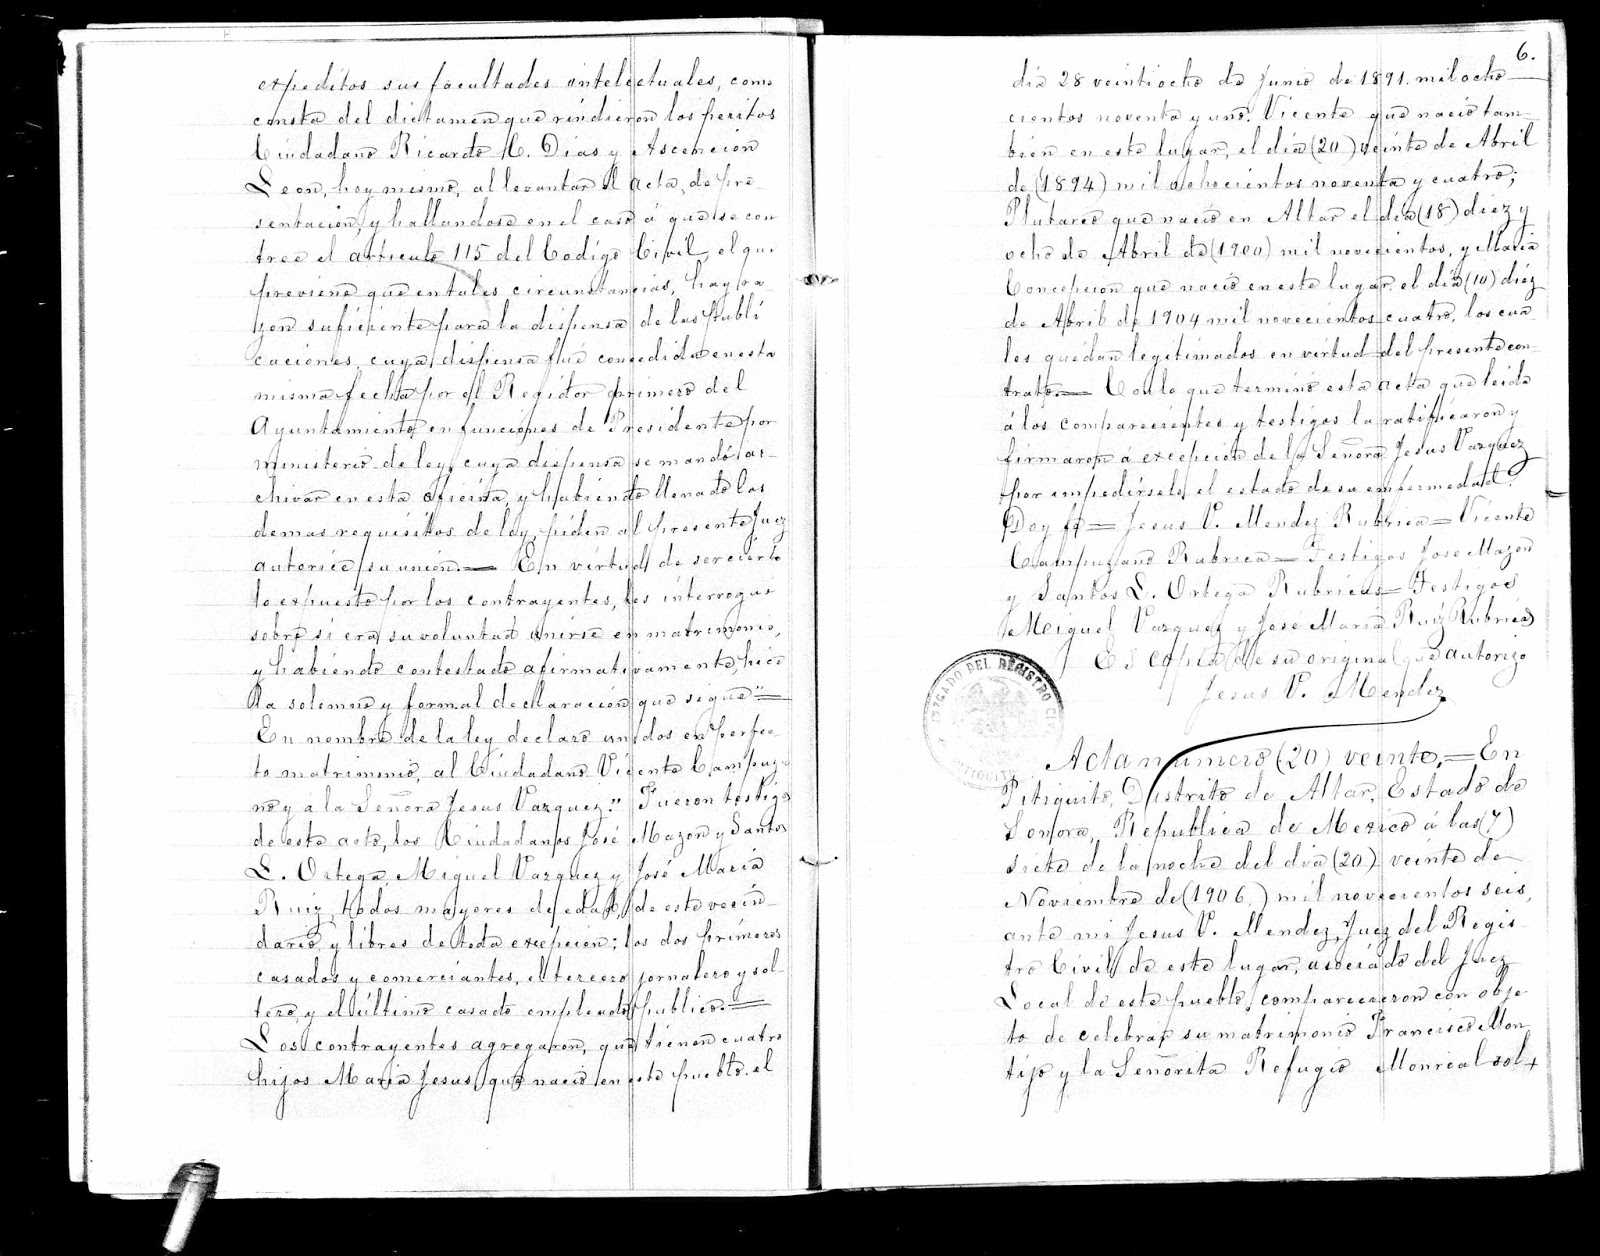 expeditos sus facultades intelectuales, como
consta del dictamen que rindieron los peritos
Ciudadano Ricardo C. Dias y Ascención
Leon, hoy mismo, al levantar el acta, de pre-
sentación, y hallandose en el caso á que se con
trae el articulo 115 del Codigo Civil, el que
previene que en tales circunstancias, hay ra-
zon suficiente para la dispensa de las publi
caciones, cuya dispensa fué concedida en esta
misma fecha por el Regidor primero del
Ayuntamiento en funciones de Presidente por
ministerio de ley, cuya dispensa se mandó ar-
chivar en esta oficina, y habiendo llenado los
demas requisitos de ley, piden al presente Juez
autorice su unión.= En virtud de ser cierto
lo expuesto por los contrayentes, les interrogué
sobre si era su voluntad unirse en matrimonio,
y habiendo contestado afirmativamente, hice
la solemne y formal declaración que sigue "=
En nombre de la ley declaro unidos en perfec
to matrimonio, al Ciudadano Vicente Campuza
no y á la Señora Jesus Vazquez." Fueron testigos
de este acto, los Ciudadanos José Mazon y Santos
L. Ortega, Miguel Vazquez y José Maria
Ruiz, todos mayores de edad, de este vecin-
dario, y libres de toda excepción; los dos primeros
casados y comerciantes, el tercero jornalero y sol-
tero, y el último casado empleado publico.=
Los contrayentes agregaron, que tienen cuatro
hijos Maria Jesus, que nació en este pueblo el
6.
dia 28 veintiocho de Junio de 1891. mil ocho
cientos noventa y uno. Vicente que nació tam-
bien en este lugar, el día (20) veinte de Abril
de (1894) mil ochocientos noventa y cuatro;
Plutarco que nació en Altar el día (18) diez y
ocho de Abril de (1900) mil novecientos, y Maria
Concepcion que nació en este lugar el día (10) diéz
de Abril de 1904 mil novecientos cuatro, los cua-
les quedan legitimados en virtud del presente con-
trato.= Con lo que terminó esta acta que leida
á los comparecientes y testigos la ratificaron y
firmaron á excepción de la Señora Jesus Vazquez
por impedirselo el estado de su enfermedad.
Doy fé= Jesus V. Mendez Rubrica= Vicente
Campuzano Rubrica= Testigos Jose Mazon
y Santos L. Ortega Rubricas= Testigos
Meiguel Vazquez y José Maria Ruiz Rubricas
Es copia de su original que autorizo
Jesus V. Mendez
JUZGADO DEL REGISTRO CIVIL
PITIQUITO
Acta numero (20) veinte.= En
Pitiquito, Distrito de Altar, Estado de
Sonora, Republica de Mexico á las (7)
siete de la noche del día (20) veinte de
Noviembre de (1906,) mil novecientos seis,
ante mi Jesus V. Mendez, Juez del Regis-
tro Civil de este lugar, asociado del Juez
Local de este pueblo, comparecieron con obje
to de celebrar su matrimonio Francisco Mon
tijo y la Señorita Refugio Monreal sol+